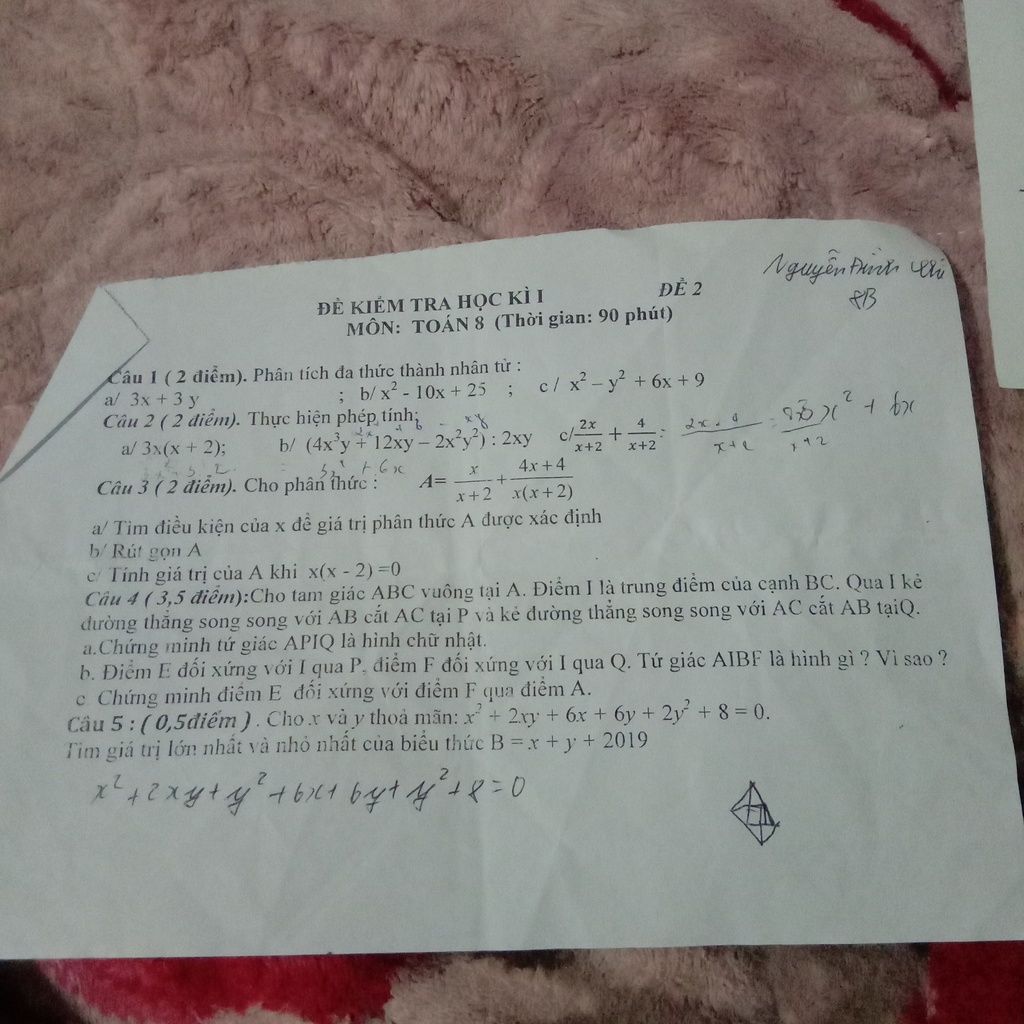 Nguyễn Đình
8B
ĐỀ KIỂM TRA HỌC KÌ I ĐỀ 2
MÔN: TOÁN 8 (Thời gian: 90 phút)
Câu 1 ( 2 điểm). Phân tích đa thức thành nhân tử :
a/ 3x + 3 y ; b/ x² - 10x + 25 ; c / x² – y² + 6x + 9
Câu 2 ( 2 điểm). Thực hiện phép tính:
a/ 3x(x + 2); b/ (4x³y + 12xy – 2x²y²) : 2xy c/ 2x/(x+2) + 4/(x+2) :
+ 6x
Câu 3 ( 2 điểm). Cho phân thức : A= x/(x+2) + (4x+4)/(x(x+2))
a/ Tìm điều kiện của x để giá trị phân thức A được xác định
b/ Rút gọn A
c/ Tính giá trị của A khi x(x - 2) =0
Câu 4 ( 3,5 điểm):Cho tam giác ABC vuông tại A. Điểm I là trung điểm của cạnh BC. Qua I kẻ
đường thẳng song song với AB cắt AC tại P và kẻ đường thẳng song song với AC cắt AB tạiQ.
a.Chứng minh tứ giác APIQ là hình chữ nhật.
b. Điểm E đối xứng với I qua P, điểm F đối xứng với I qua Q. Tứ giác AIBF là hình gì ? Vì sao ?
c. Chứng minh điểm E đối xứng với điểm F qua điểm A.
Câu 5 : ( 0,5điểm ) . Cho x và y thoả mãn: x² + 2xy + 6x + 6y + 2y² + 8 = 0.
Tìm giá trị lớn nhất và nhỏ nhất của biểu thức B = x + y + 2019
x² + 2xy + y² + 6x + 6y + y² + 8 = 0